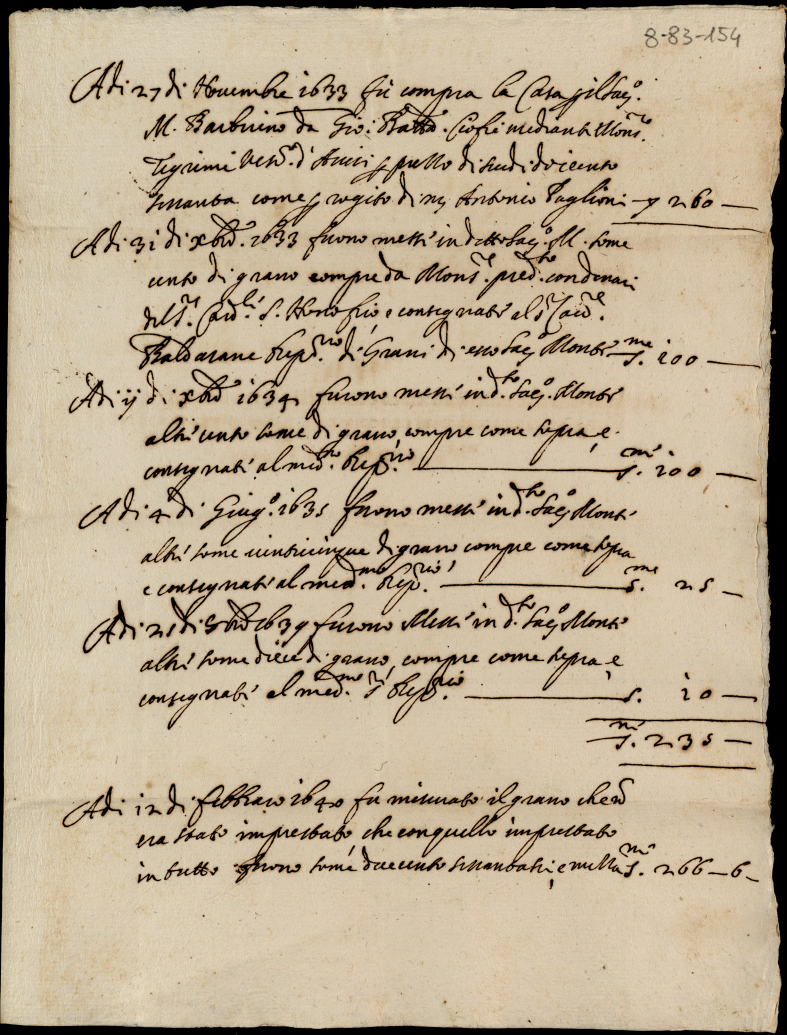 8-83-154
Adi 27 di Novembre 1633 fù compra la Casa p il Sacº.
M. Barberino da Gio: Batta. mediante Monsre.
Tigrimi Vescº. d'Assisi p prezzo di scudi doicento
sessanta come p rogito di mr Antonio Taglioni — 260 —
Adi 31 di Xbre. 1633 furono messi in detto Sacº. M. some
cento di grano compre da Monsre. predto. con denari
del Sre. Cardle. S. Honofrio e consegnati al Sre
Baldassarre Depprio. di Grani di esso Sacº Monte — sme. 100 —
Adi ij di Xbre 1634 furono messi in dto. Sacº. Monte
altri cento some di grano, compre come sopra, e
consegnati al medmo. Deprio. — sme. 100 —
Adi 4 di Giugº. 1635 furono messi in dto. Sacº Monte
altri some venticinque di grano compre come sopra
e consegnati al medmo. Deprio. — sme. 25 —
Adi 25 di 1639 furono Messi in dto. Sacº Monte
altri some diece di grano, compre come sopra, e
consegnati al medmo. Sre Deprio. — s. 10 —
sme. 235 —
Adi 12 di febbraro 1640 fu misurato il grano che
era stato imprestato che con quello imprestato
in tutto furono some duecento sessantasei, e sme. 266 — 6 —